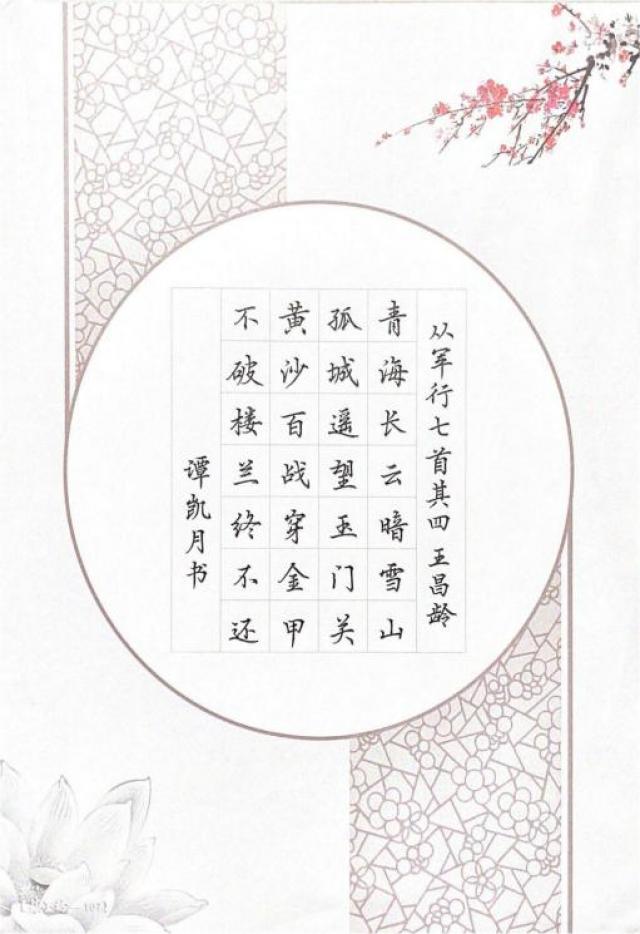 从军行七首其四 王昌龄
青海长云暗雪山
孤城遥望玉门关
黄沙百战穿金甲
不破楼兰终不还
谭凯月书